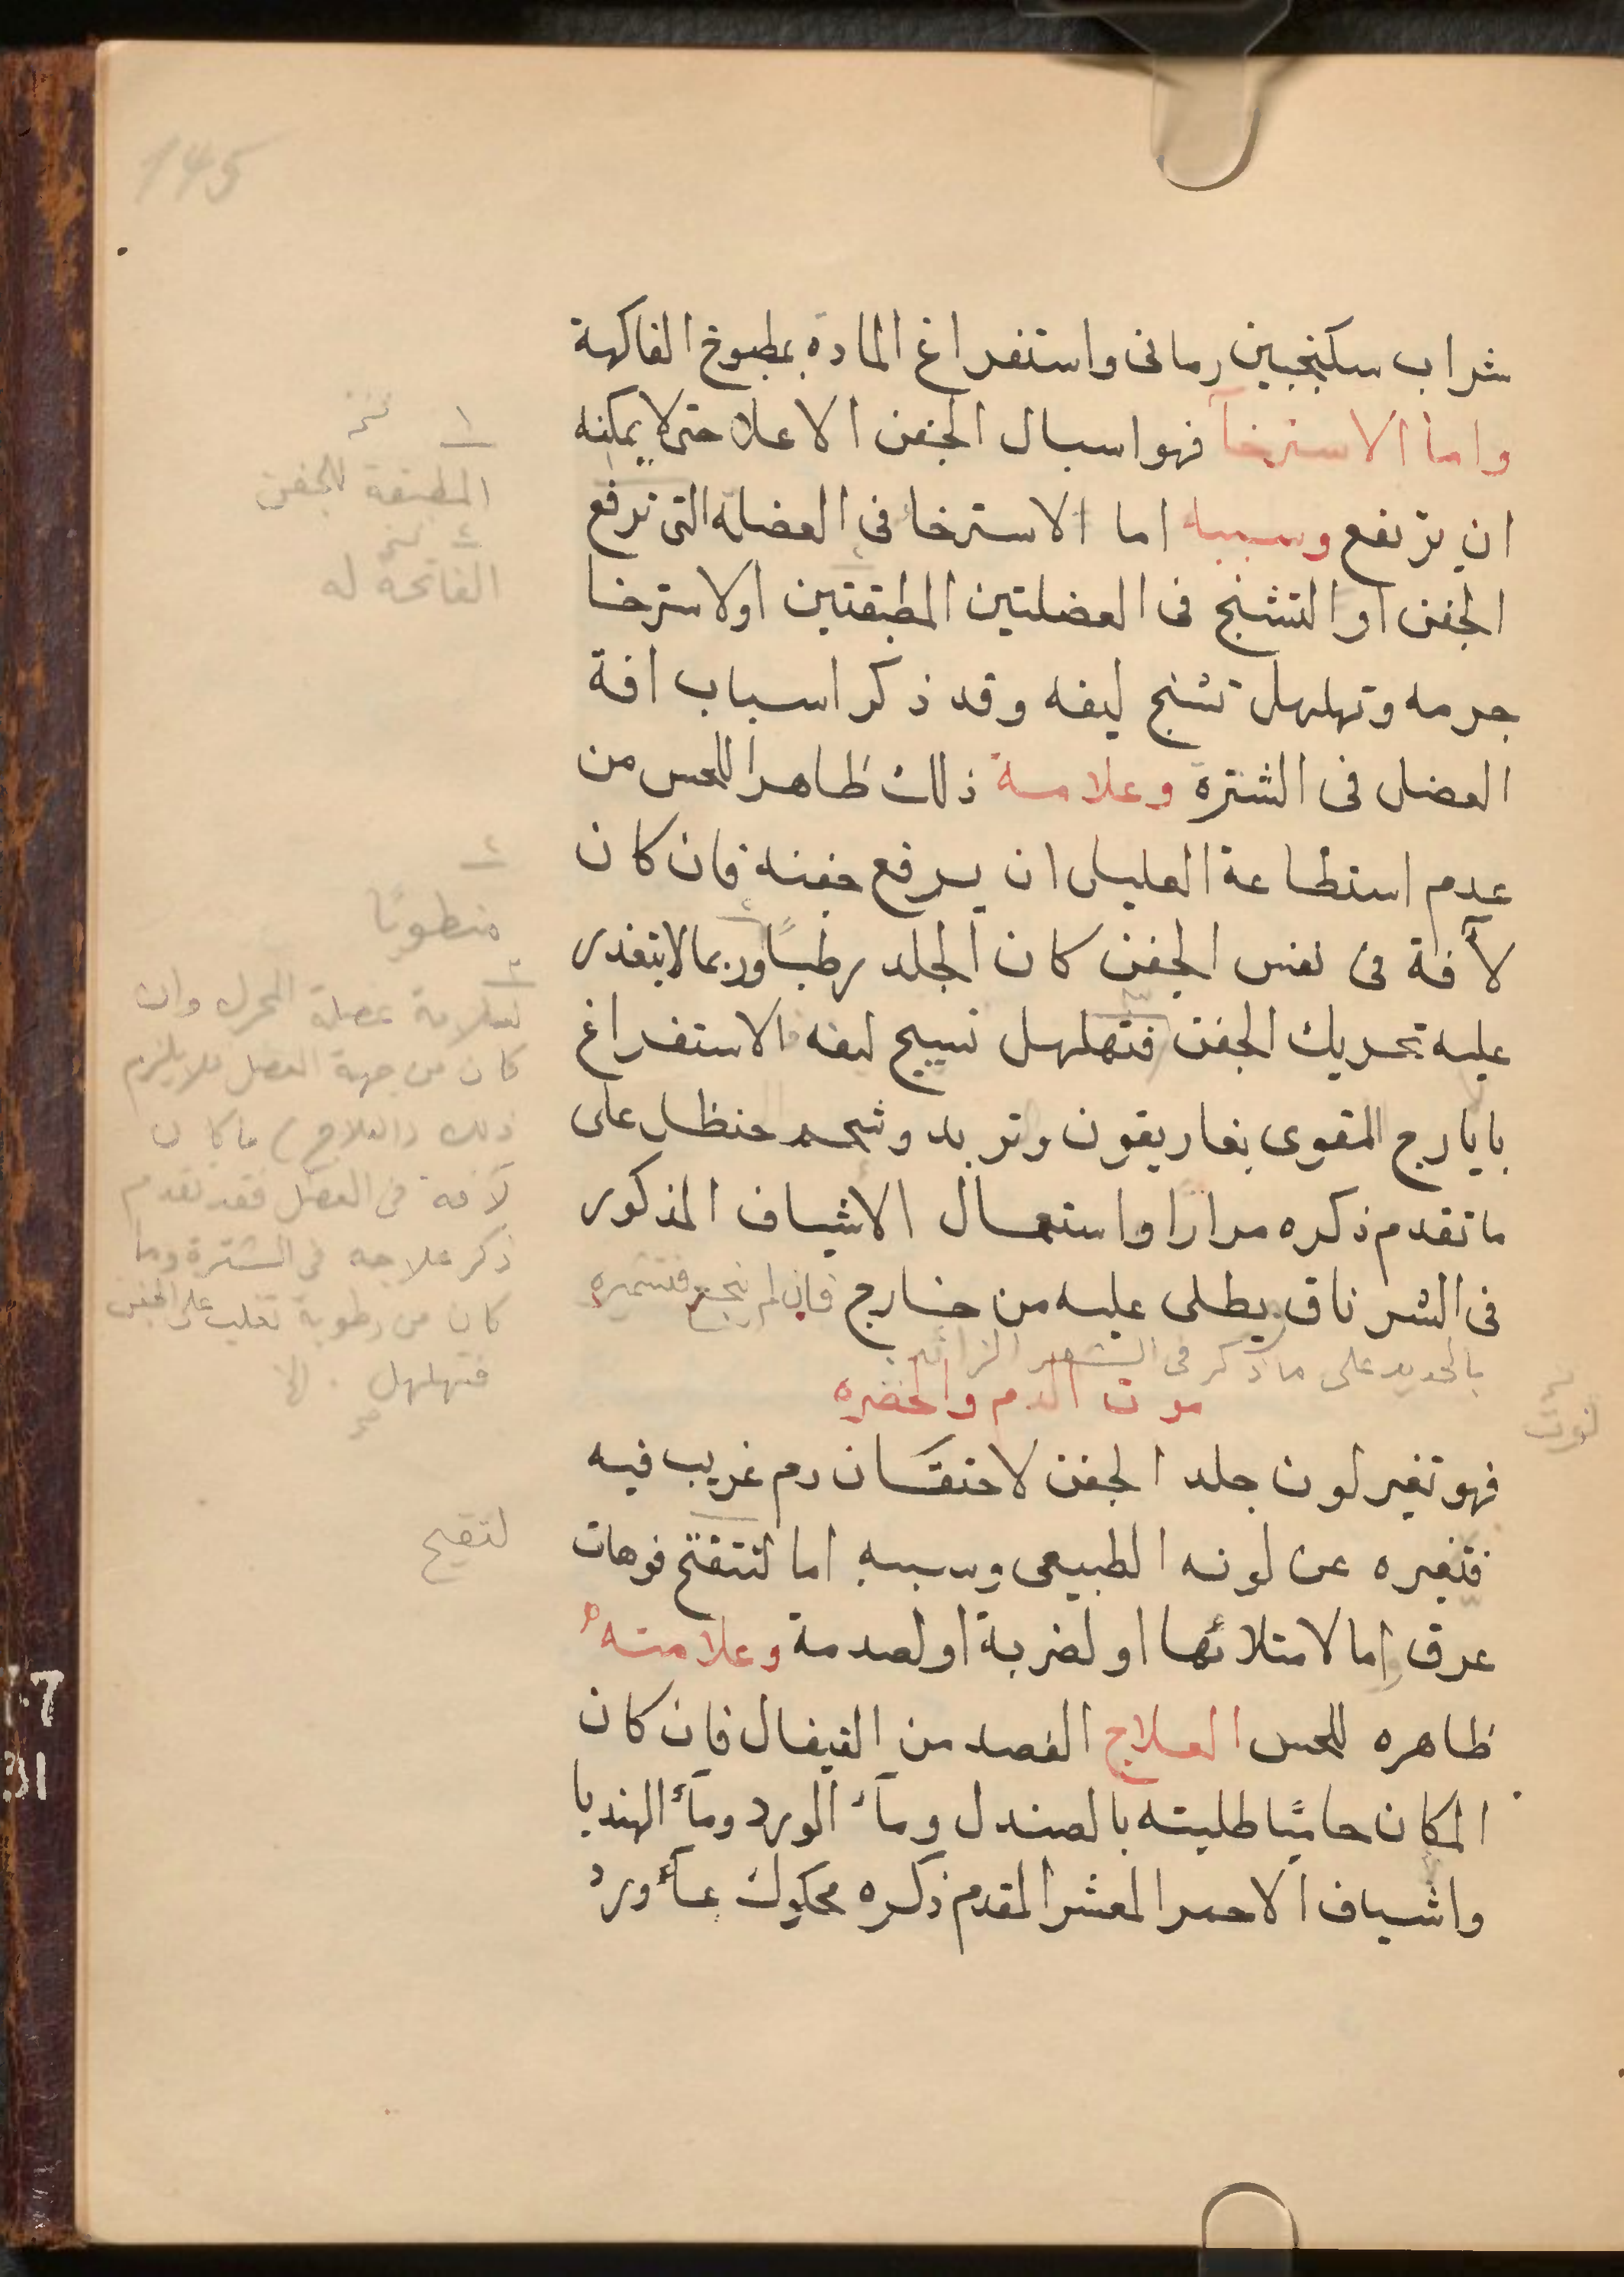 145
شراب سكنجبين رمانى واستفراغ المادة بمطبوخ الفاكهة
واما الاسترخآ فهو اسبال الجفن الاعلا حتى لا يمكنه
ان يرتفع وسببه اما الاسترخا فى العضلة التى ترفع
الجفن او التشنج فى العضلتين المطبقتين اولاسترخا
جرمه وتهلهل تشنج ليفه وقد ذكر اسباب افة
العضل فى الشترة وعلامة ذلك ظاهرا للحس من
عدم استطاعة العليل ان يرفع جفنه فان كان
لآفة فى نفس الجفن كان الجلد رطبًا وربما لا يتعذر
عليه تحريك الجفن فتهلهل نسيج ليفه الاستفراغ
بايارج المقوى بغاريقون وتربد وشحم حنظل على
ما تقدم ذكره مرارًا واستعمال الاشياف المذكور
فى الشرناق يطلى عليه من خارج فان لم ينجع فتشميره
بالحديد على ما ذكر فى الشعر الزائد
موت الدم والخضره
فهو تغير لون جلد الجفن لاحتقان دم غريب فيه
فتغيره عن لونه الطبيعى وسببه اما لتفتح فوهات
عرق واما لامتلائها او لضربة او لصدمة وعلامته
ظاهره للحس العلاج الفصد من القيفال فان كان
المكان حاميًا طليته بالصندل ومآء الورد ومآء الهندبا
واشياف الاحمر المعشر المقدم ذكره محكوك بمآء ورد
١
المطبقة للجفن
٢
الفاتحة له
٢
منطويًا
٣
لسلامة عضلة المحرك وان
كان من جهة العضل فلا يلزم
ذلك (العلاج) ما كان
لآفة فى العضل فقد تقدم
ذكر علاجه فى الشترة وما
كان من رطوبة تغلب على الجفن
فتهلهل الا
لتقيح